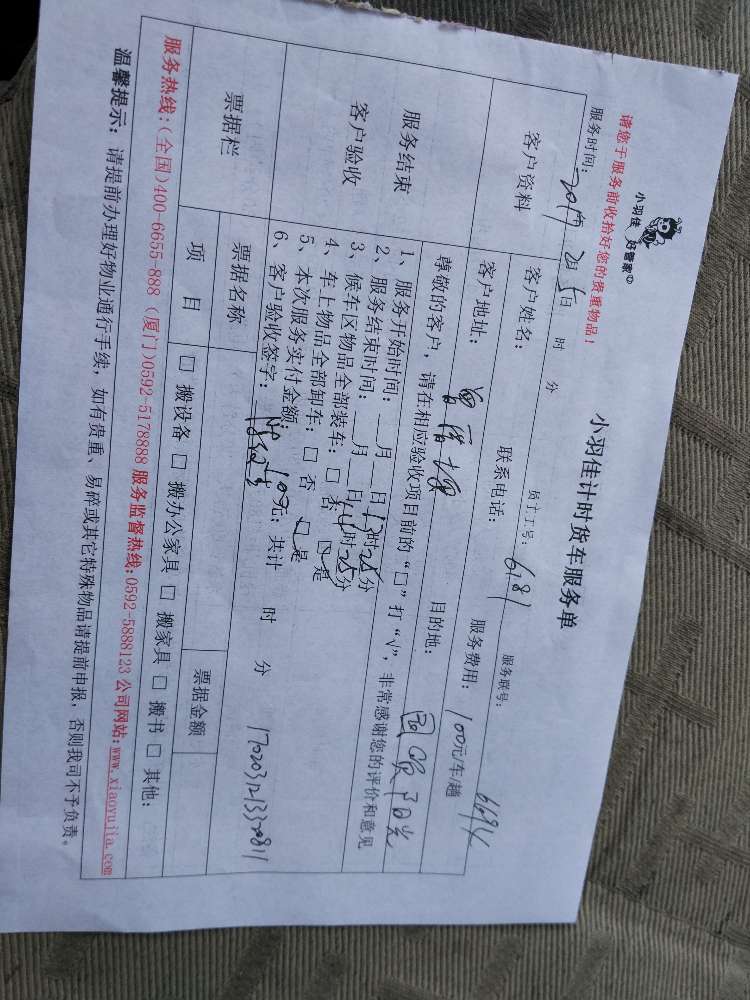 小羽佳 好管家
小羽佳计时货车服务单
请您于服务前收拾好您的贵重物品！
服务时间：2017年 2月 5日 时 分 员工工号：6181 服务联号：6694
客户资料 客户姓名： 联系电话： 服务费用：100元/车/趟
客户地址： 目的地：
服务结束 客户验收
尊敬的客户，请在相应验收项目前的“□”打“√”，非常感谢您的评价和意见
1、服务开始时间：__月__日13时25分
2、服务结束时间：__月__日14时25分
3、候车区物品全部装车：□ 否 □ 是
4、车上物品全部卸车：□ 否 □ 是
5、本次服务实付金额：100元；共计 时 分
6、客户验收签字：
17020312133720811
票据栏 票据名称 票据金额
项 目 □ 搬设备 □ 搬办公家具 □ 搬家具 □ 搬书 □ 其他：
服务热线：(全国)400-6655-888 (厦门)0592-5178888 服务监督热线：0592-5888123 公司网站：www.xiaoyujia.com
温馨提示：请提前办理好物业通行手续，如有贵重、易碎或其它特殊物品请提前申报，否则我司不予负责。